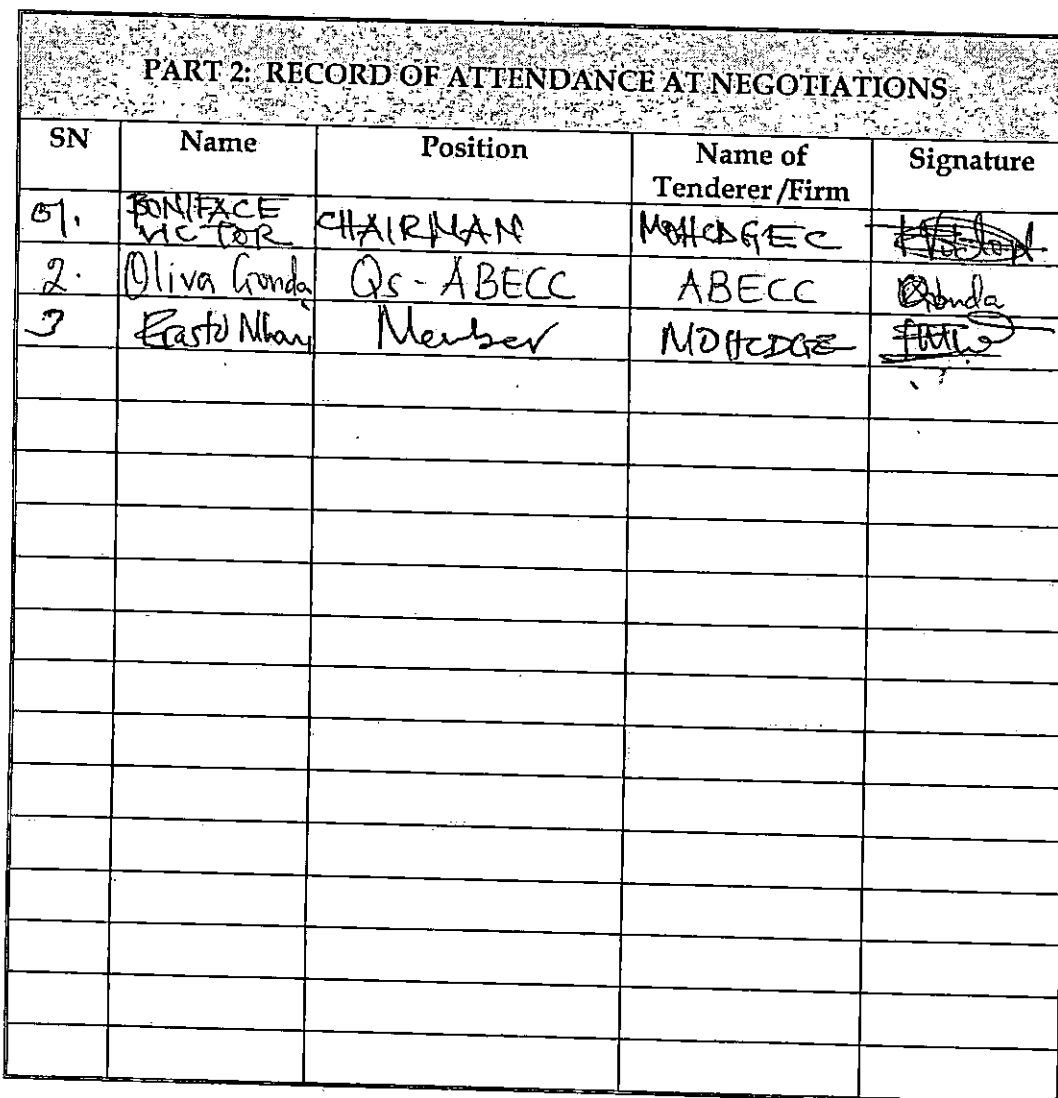 PART 2: RECORD OF ATTENDANCE AT NEGOTIATIONS
SN Name Position Name of Tenderer/Firm Signature
01. BONIFACE VICTOR CHAIRMAN MOHCDGEC
2. Oliva Gonda Qs - ABECC ABECC Gonda
3 Erasto Member MOHCDGE